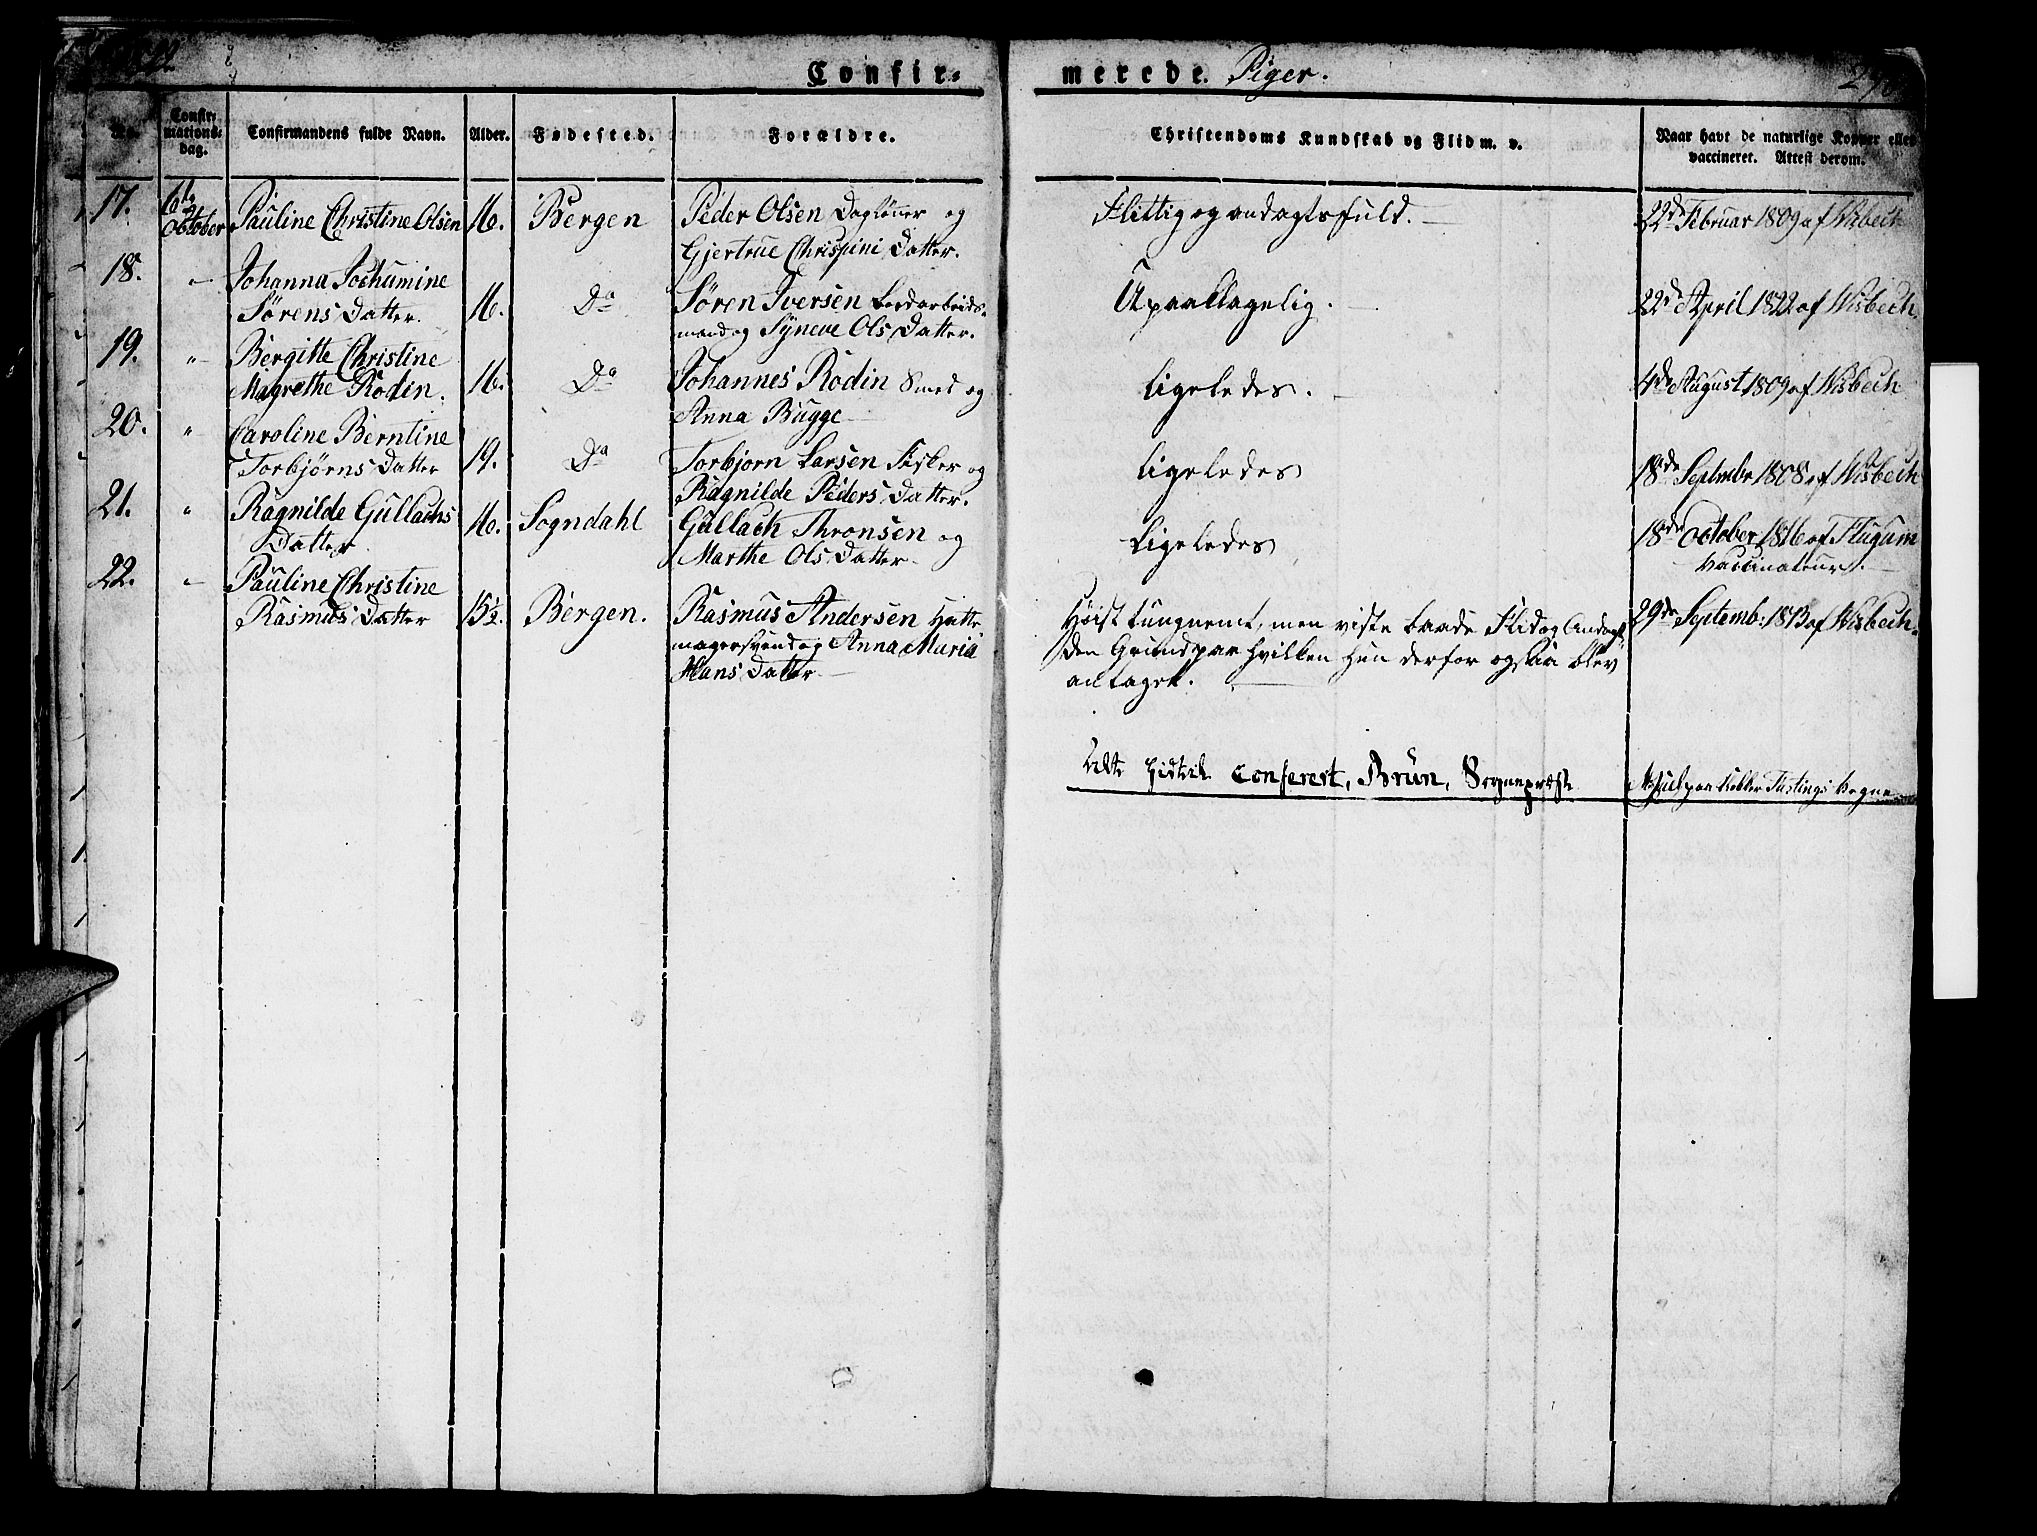 Confir= merede. Piger.
No. Confirmations=dag. Confirmandens fulde Navn. Alder. Fødested. Forældre. Christendoms Kundskab og Flid m. v. Naar havt de naturlige Kopper eller
vaccineret. Attest derom.
17. 6te October Pauline Christine Olsen 16. Bergen Peder Olsen Dagløner og Flittig og andagtsfuld. 22de Februar 1809 af Wisbech
Gjertrue Chrispini Datter.
18. " Johanna Jochumine
Sørens Datter. 16. Do Søren Iversen Bordarbeids- Upaaklagelig. 22de April 1822 af Wisbech
mand og Syneve Ols Datter.
19. " Bergitte Christine
Magrethe Rodin. 16. Do Johannes Rodin Smed og Ligeledes. 4de August 1809 af Wisbech
Anna Bugge
20. " Caroline Berntine
Torbjørns Datter 19. Do Torbjorn Larsen Fisker og Ligeledes 18de Septembr 1808 af Wisbech
Ragnilde Peders Datter.
21. " Ragnilde Gullachs 16. Sogndahl Gullach Thronsen og Ligeledes 18de October 1816 af Flugum
Datter. Marthe Ols Datter. Vaccinateur.
22. " Pauline Christine
Rasmus Datter 15½. Bergen. Rasmus Andersen Hatte Høist tungnemt, men viste baade Flid og Andagt 29de Septemb: 1813 af Wisbech.
magersvend og Anna Maria den Grund paa hvilken hun derfor ogsaa blev
Hans Datter antaget.
Alt hidtil Confereret, Brun, Sognepræst